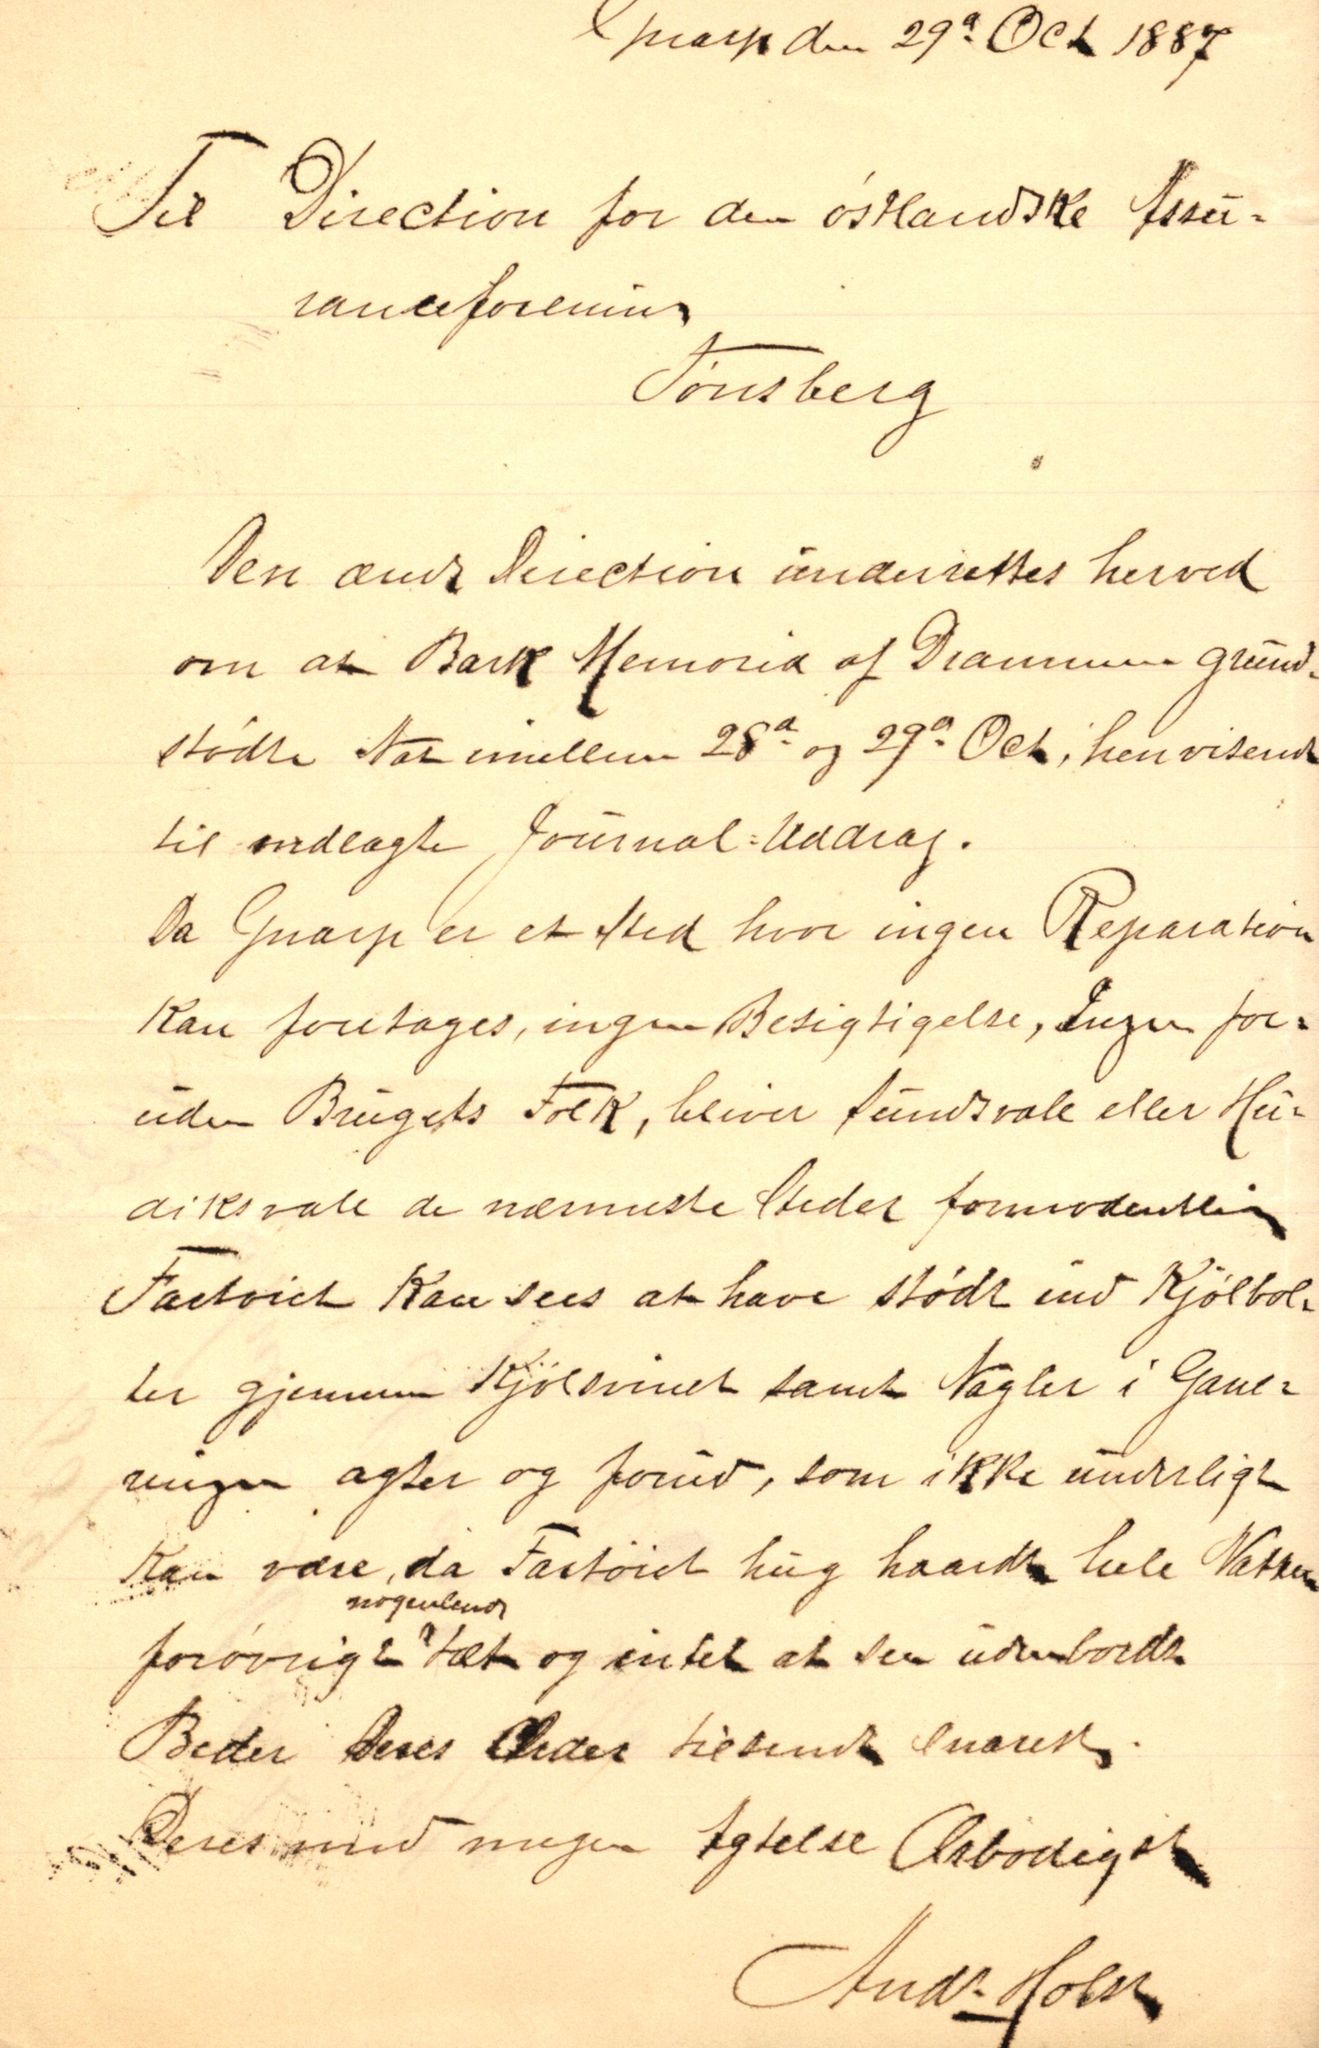 Gnarp den 29ª Oct 1887
Til Direction for den östlandske Assu-
ranceforening
Tönsberg
Den ærede Direction underrettes herved
om at Bark Memoria af Drammen grund-
stödte Nat imellem 28ª og 29ª Oct, henvisende
til vedlagte Journal=Uddrag.
Da Gnarp er et Sted hvor ingen Reparation
kan foretages, ingen Besigtigelse, Ingen for-
uden Brugets Folk, bliver Sundsvall eller Hu-
diksvall de nærmeste Steder formodentlig
Fartöiet kan sees at have stödt ind Kjölbol-
ter gjennem Kjölsvinet samt Nagler i Garne-
ringen agter og forud, som ikke underligt
kan være, da Fartöiet hug haardt hele Natten
nogenlunde
forövrigt tæt og intet at see udenbords
Beder Deres Order tilsendt snarest.
Deres med megen Agtelse Ærbödigst
Andr. Holst